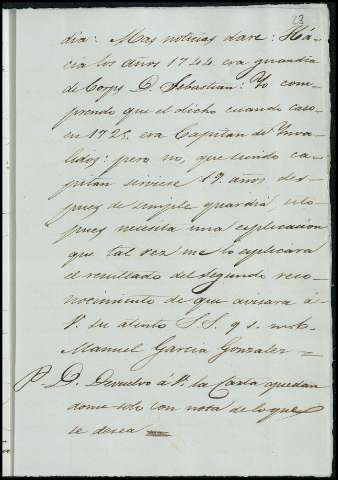 23
dia: Mas noticias dare: Há-
cia los años 1744 era guardia
de Corps D. Sebastian: Yo com-
prendo que el dicho cuando caso
en 1725 era Capitan de Ynva-
lidos: pero no, que siendo ca-
pitan sirviese 19 años des-
pues de simple guardia,
pues necesita una esplicacion
que tal vez me lo aplicará
el resultado del segundo reco-
nocimiento de que avisará á
V. su atento S.S. q. s. m. b.
Manuel Garcia Gonzalez =
P. D. Devuelvo á V. la Carta quedan
dome solo con nota de lo que
se desea